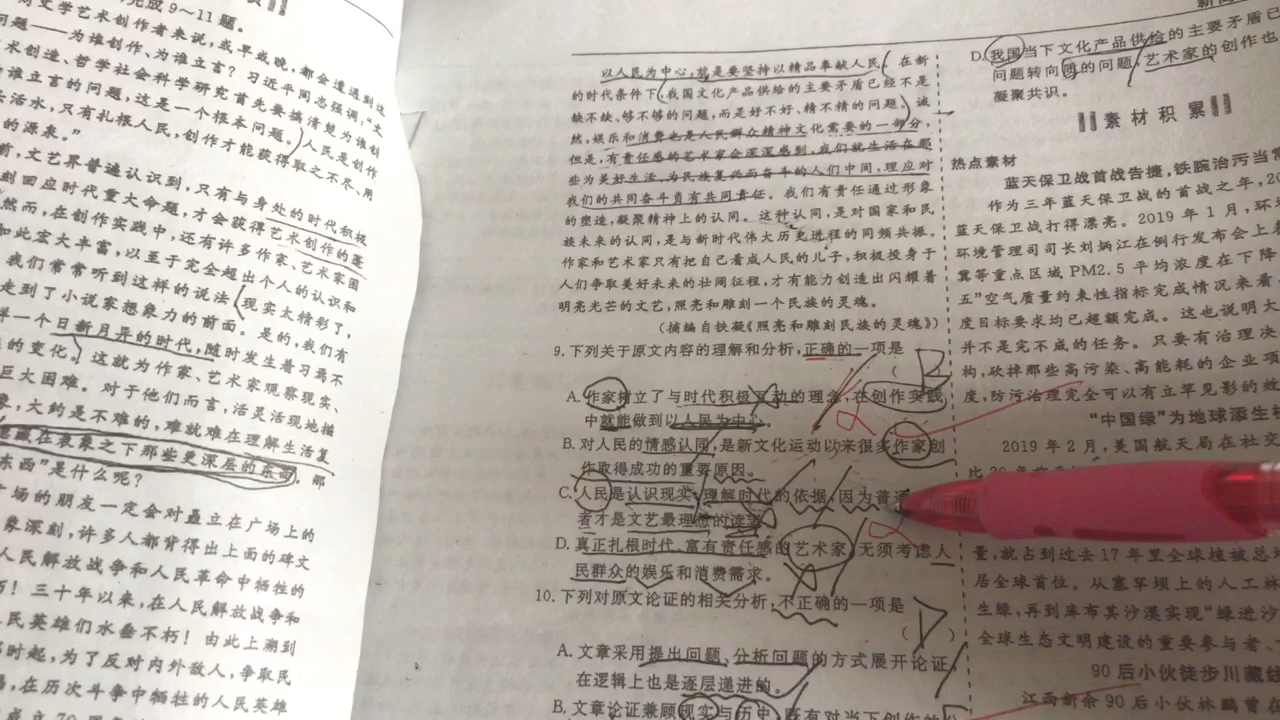 完成9～11题。
对文学艺术创作者来说，或早或晚，都会遭遇到这
问题——为谁创作、为谁立言？习近平同志强调，“文
术创造、哲学社会科学研究首先要搞清楚为谁创
为谁立言的问题，这是一个根本问题。人民是创作
头活水，只有扎根人民，创作才能获得取之不尽、用
的源泉。”
前，文艺界普遍认识到，只有与身处的时代积极
刻回应时代重大命题，才会获得艺术创作的蓬
然而，在创作实践中，还有许多作家、艺术家困
如此宏大丰富，以至于完全超出个人的认识和
我们常常听到这样的说法：现实太精彩了，
走到了小说家想象力的前面。是的，我们有
样一个日新月异的时代，随时发生着习焉不
的变化。这就为作家、艺术家观察现实、
巨大困难。对于他们而言，活灵活现地描
象，大约是不难的，难就难在理解生活复
隐藏在表象之下那些更深层的东西。那
东西”是什么呢？
广场的朋友一定会对矗立在广场上的
象深刻，许多人都背得出上面的碑文
人民解放战争和人民革命中牺牲的
朽！三十年以来，在人民解放战争和
民英雄们水垂不朽！由此上溯到
那时起，为了反对内外敌人，争取民
福，在历次斗争中牺牲的人民英雄
以人民为中心，就是要坚持以精品奉献人民。在新
的时代条件下，我国文化产品供给的主要矛盾已经不是
缺不缺、够不够的问题，而是好不好、精不精的问题。诚
然，娱乐和消费也是人民群众精神文化需要的一部分，
但是，有责任感的艺术家会深深感到，我们就生活在那
些为美好生活、为民族复兴而奋斗的人们中间，理应对
我们的共同奋斗负有共同责任。我们有责任通过形象
的塑造，凝聚精神上的认同。这种认同，是对国家和民
族未来的认同，是与新时代伟大历史进程的同频共振。
作家和艺术家只有把自己看成人民的儿子，积极投身于
人们争取美好未来的壮阔征程，才有能力创造出闪耀着
明亮光芒的文艺，照亮和雕刻一个民族的灵魂。
（摘编自铁凝《照亮和雕刻民族的灵魂》）
9.下列关于原文内容的理解和分析，正确的一项是
（B）
A.作家树立了与时代积极互动的理念，在创作实践
中就能做到以人民为中心。
B.对人民的情感认同，是新文化运动以来很多作家创
作取得成功的重要原因。
C.人民是认识现实、理解时代的依据，因为普通
者才是文艺最理想的读者。
D.真正扎根时代、富有责任感的艺术家，无须考虑人
民群众的娱乐和消费需求。
10.下列对原文论证的相关分析，不正确的一项是
（D）
A.文章采用提出问题、分析问题的方式展开论证，
在逻辑上也是逐层递进的。
B.文章论证兼顾现实与历史，既有对当下创作的
D.我国当下文化产品供给的主要矛盾已
问题转向的问题，艺术家的创作也
凝聚共识。
素材积累
热点素材
蓝天保卫战首战告捷，铁腕治污当常
作为三年蓝天保卫战的首战之年，20
蓝天保卫战打得漂亮。2019年1月，环境
环境管理司司长刘炳江在例行发布会上表
冀等重点区域PM2.5平均浓度在下降
五”空气质量约束性指标完成情况来看
度目标要求均已超额完成。这也说明大
并不是完不成的任务。只要有治理决
构，砍掉那些高污染、高能耗的企业项
度，防污治理完全可以有立竿见影的效
“中国绿”为地球添生机
2019年2月，美国航天局在社交
比20年前
量，就占到过去17年里全球植被总
居全球首位。从塞罕坝上的人工林
生绿，再到库布其沙漠实现“绿进沙
全球生态文明建设的重要参与者、
90后小伙徒步川藏线
江西新余90后小伙林鹏曾在